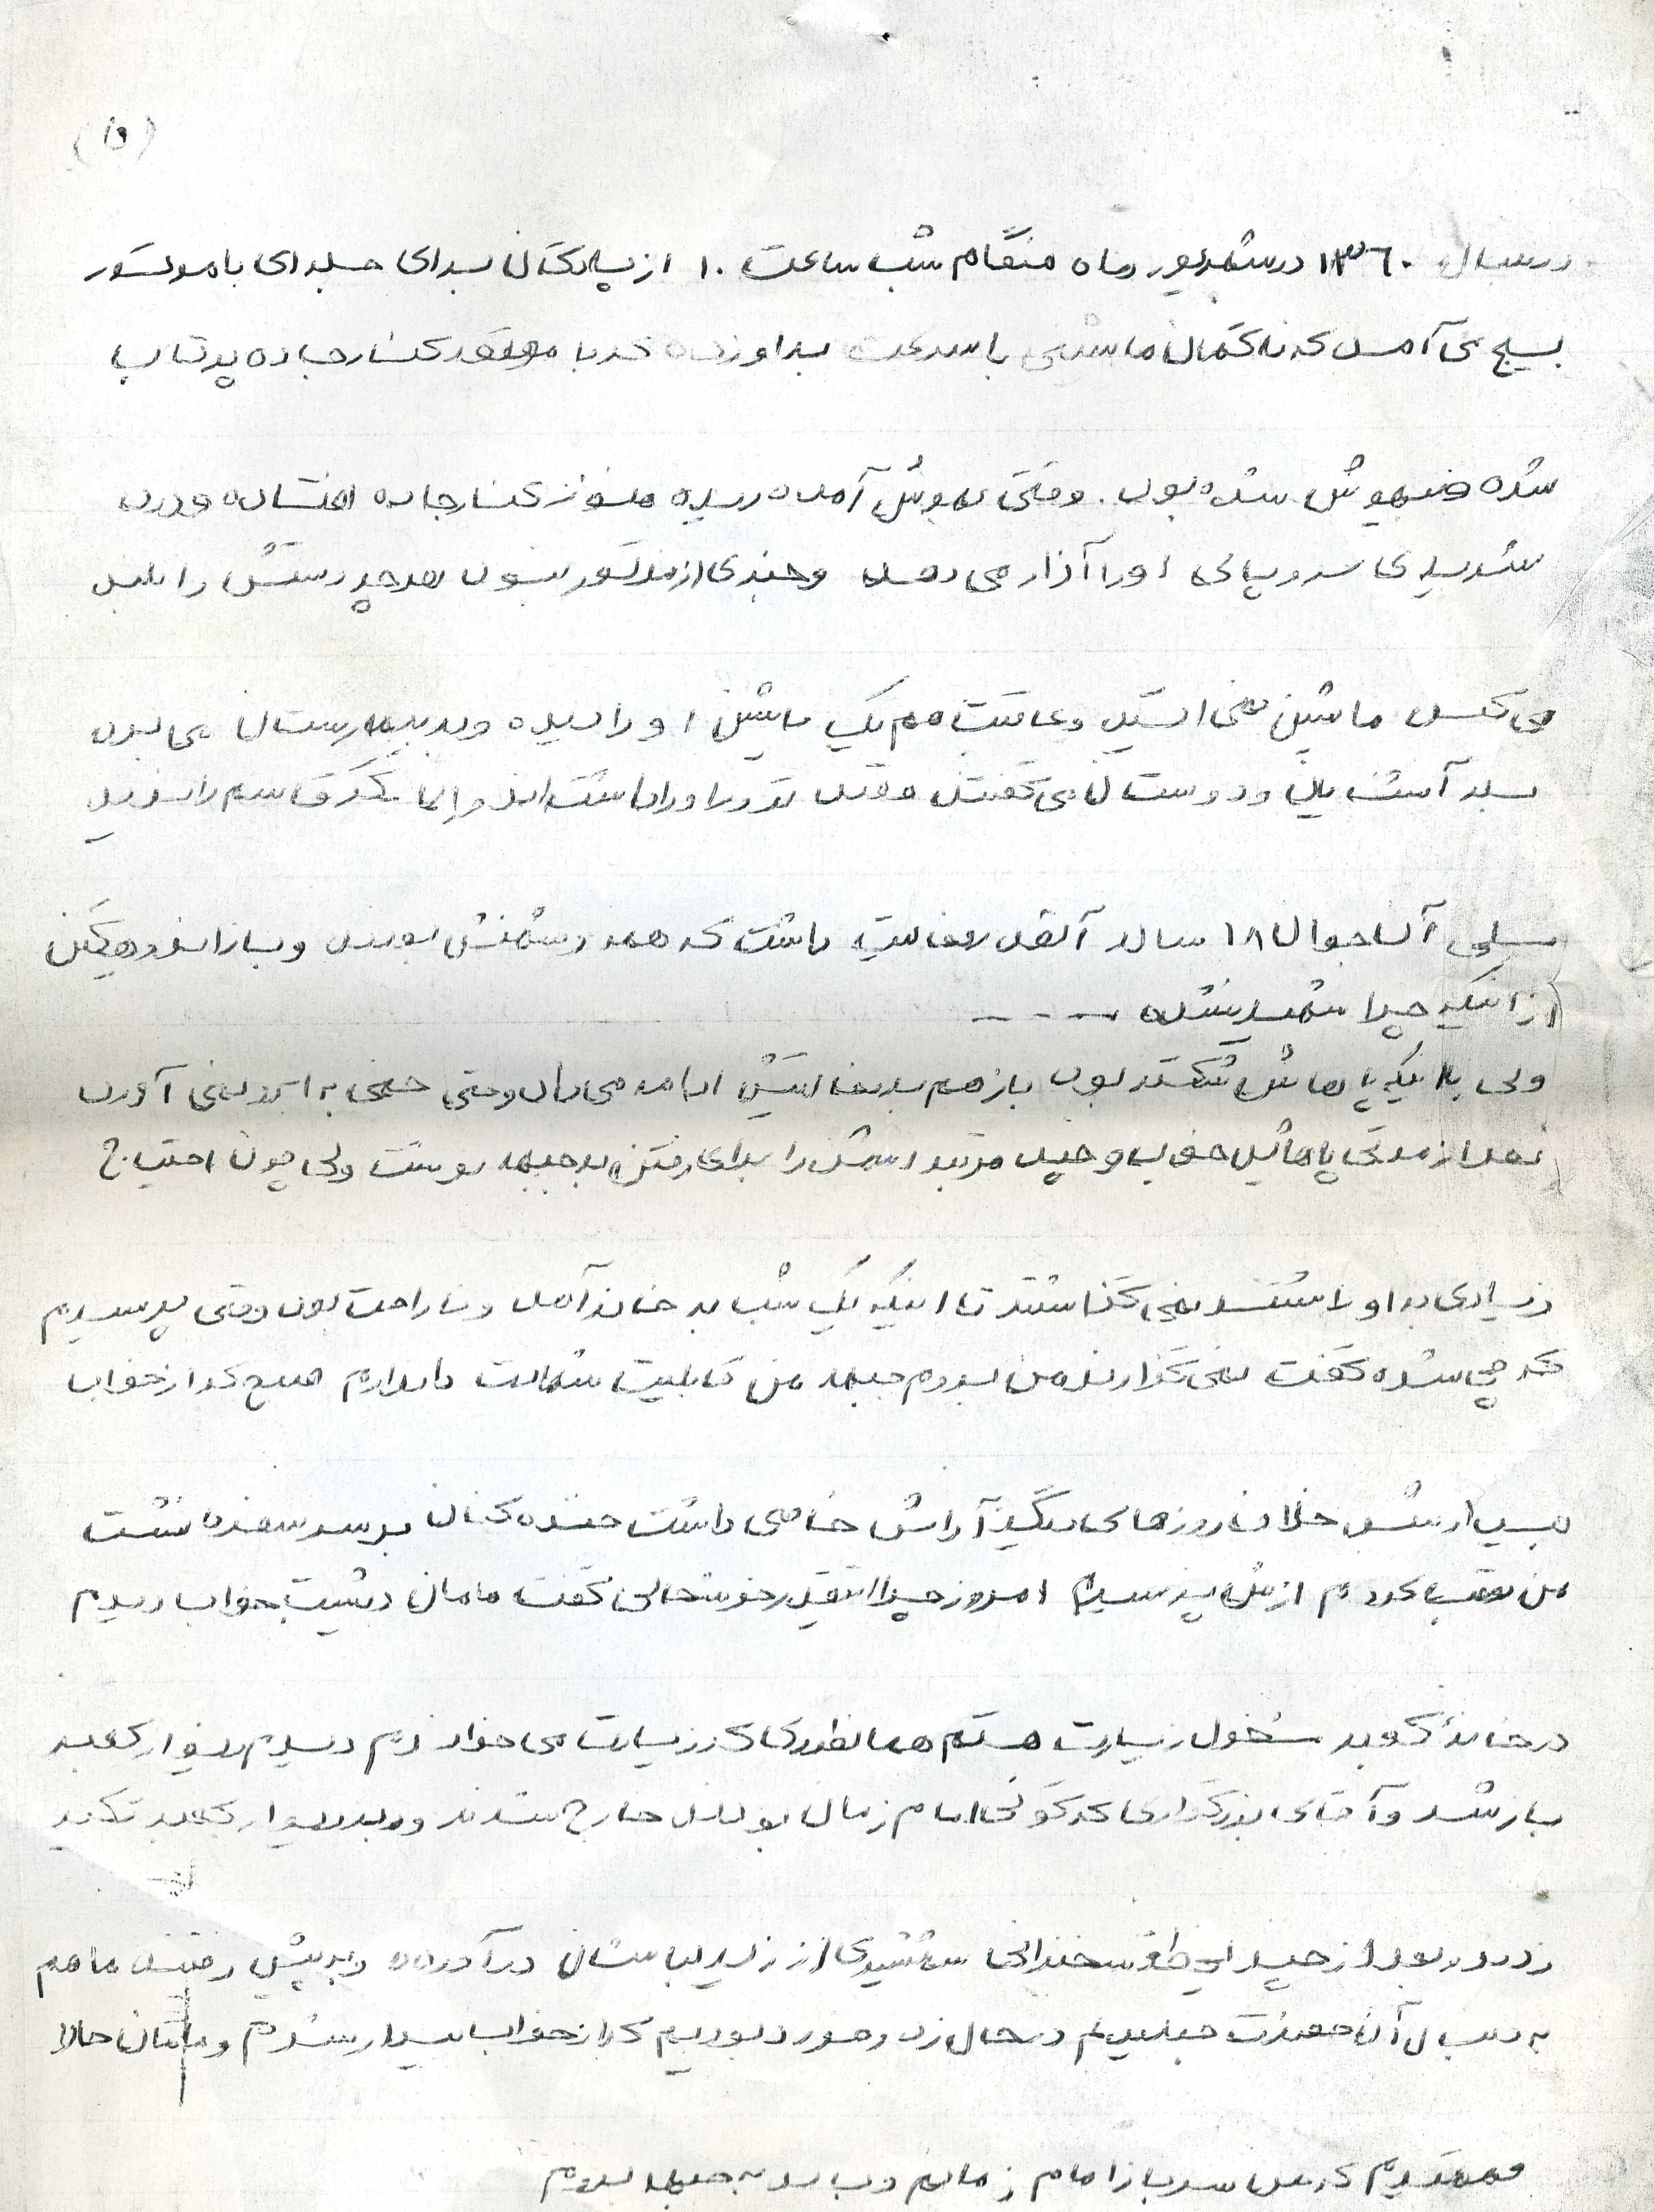 (۱۵)
در سال ۱۳۶۰ در شهریور ماه هنگام شب ساعت ۱۰ از پادگان برای جلسه‌ای با موتور
بسیج می‌آمد که ناگهان ماشینی با سرعت به او زده که با موتور کنار جاده پرتاب
شده و بیهوش شده بود. وقتی بهوش آمده دیده هنوز کنار جاده افتاده و درد
شدیدی سر و پای او را آزار می‌دهد و خبری از موتور نبود هر چه دستش را بلند
می‌کند ماشین نمی‌ایستد و عاقبت هم یک ماشین او را دیده و به بیمارستان می‌برد
بعد آشنایان و دوستان می‌گفتند قصد ترور او را داشته‌اند و اما نگذ قاسم را
بلی آن جوان ۱۸ ساله آنقدر فعالیت داشت که همه دشمنش بودند و باز اندوهگین
از اینکه چرا شهید نشده ----
ولی با اینکه پاهایش شکسته بود باز هم به فعالیتش ادامه می‌داد و حتی خمی به ابرو نمی‌آورد
بعد از مدتی پاهایش خوب و چند مرتبه اسمش را برای رفتن به جبهه نوشت ولی چون احتیاج
زیادی به او داشتند نمی‌گذاشتند تا اینکه یک شب به خانه آمد و ناراحت بود وقتی پرسیدم
که چی شده گفت نمی‌گذارند من بروم جبهه من قابلیت شهادت را ندارم صبح که از خواب
بیدار شد خلاف روزهای دیگر آرامش خاصی داشت خنده کنان بر سر سفره نشست
من تعجب کردم ازش پرسیدم امروز چرا اینقدر خوشحالی گفت مامان دیشب خواب دیدم
در خانه کعبه مشغول زیارت هستم همانطوری که زیارت می‌خواندم دیدم دیوار کعبه
باز شد و آقای بزرگواری که گوئی امام زمان بودند خارج شدند و به دیوار کعبه تکیه
زدند و بعد از چند لحظه سخنرانی شمشیری از زیر لباسشان درآورده و به پیش رفتند ما هم
به دنبال آن حضرت جنگیدیم در حال زد و خورد بودیم که از خواب بیدار شدم و مامان حالا
فهمیدم که من سرباز امام زمانم و باید به جبهه بروم